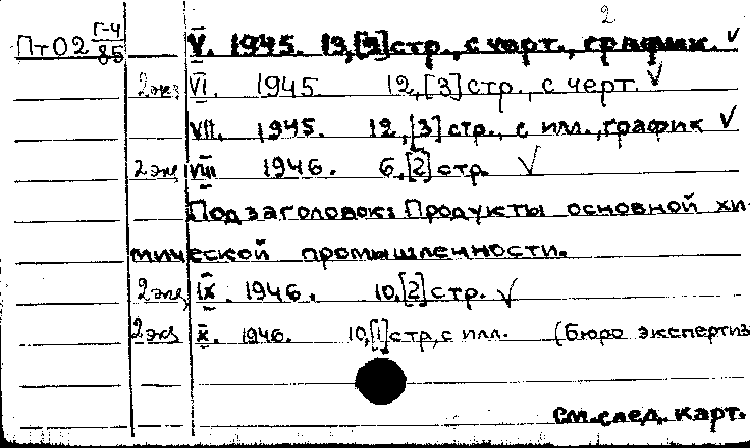 2
ПтО2 Г-4/85 V. 1945. 13,[3]стр., с черт., график. √
2экз VI. 1945 12,[3]стр., с черт. √
VII. 1945. 12,[3]стр., с илл.,график √
2экз VIII 1946. 6.[2]стр. √
Подзаголовок: Продукты основной хи-
мической промышленности.
2экз IX. 1946. 10.[2]стр. √
2экз X. 1946. 10,[1]стр,с илл. (бюро экспертиз
см.след. карт.